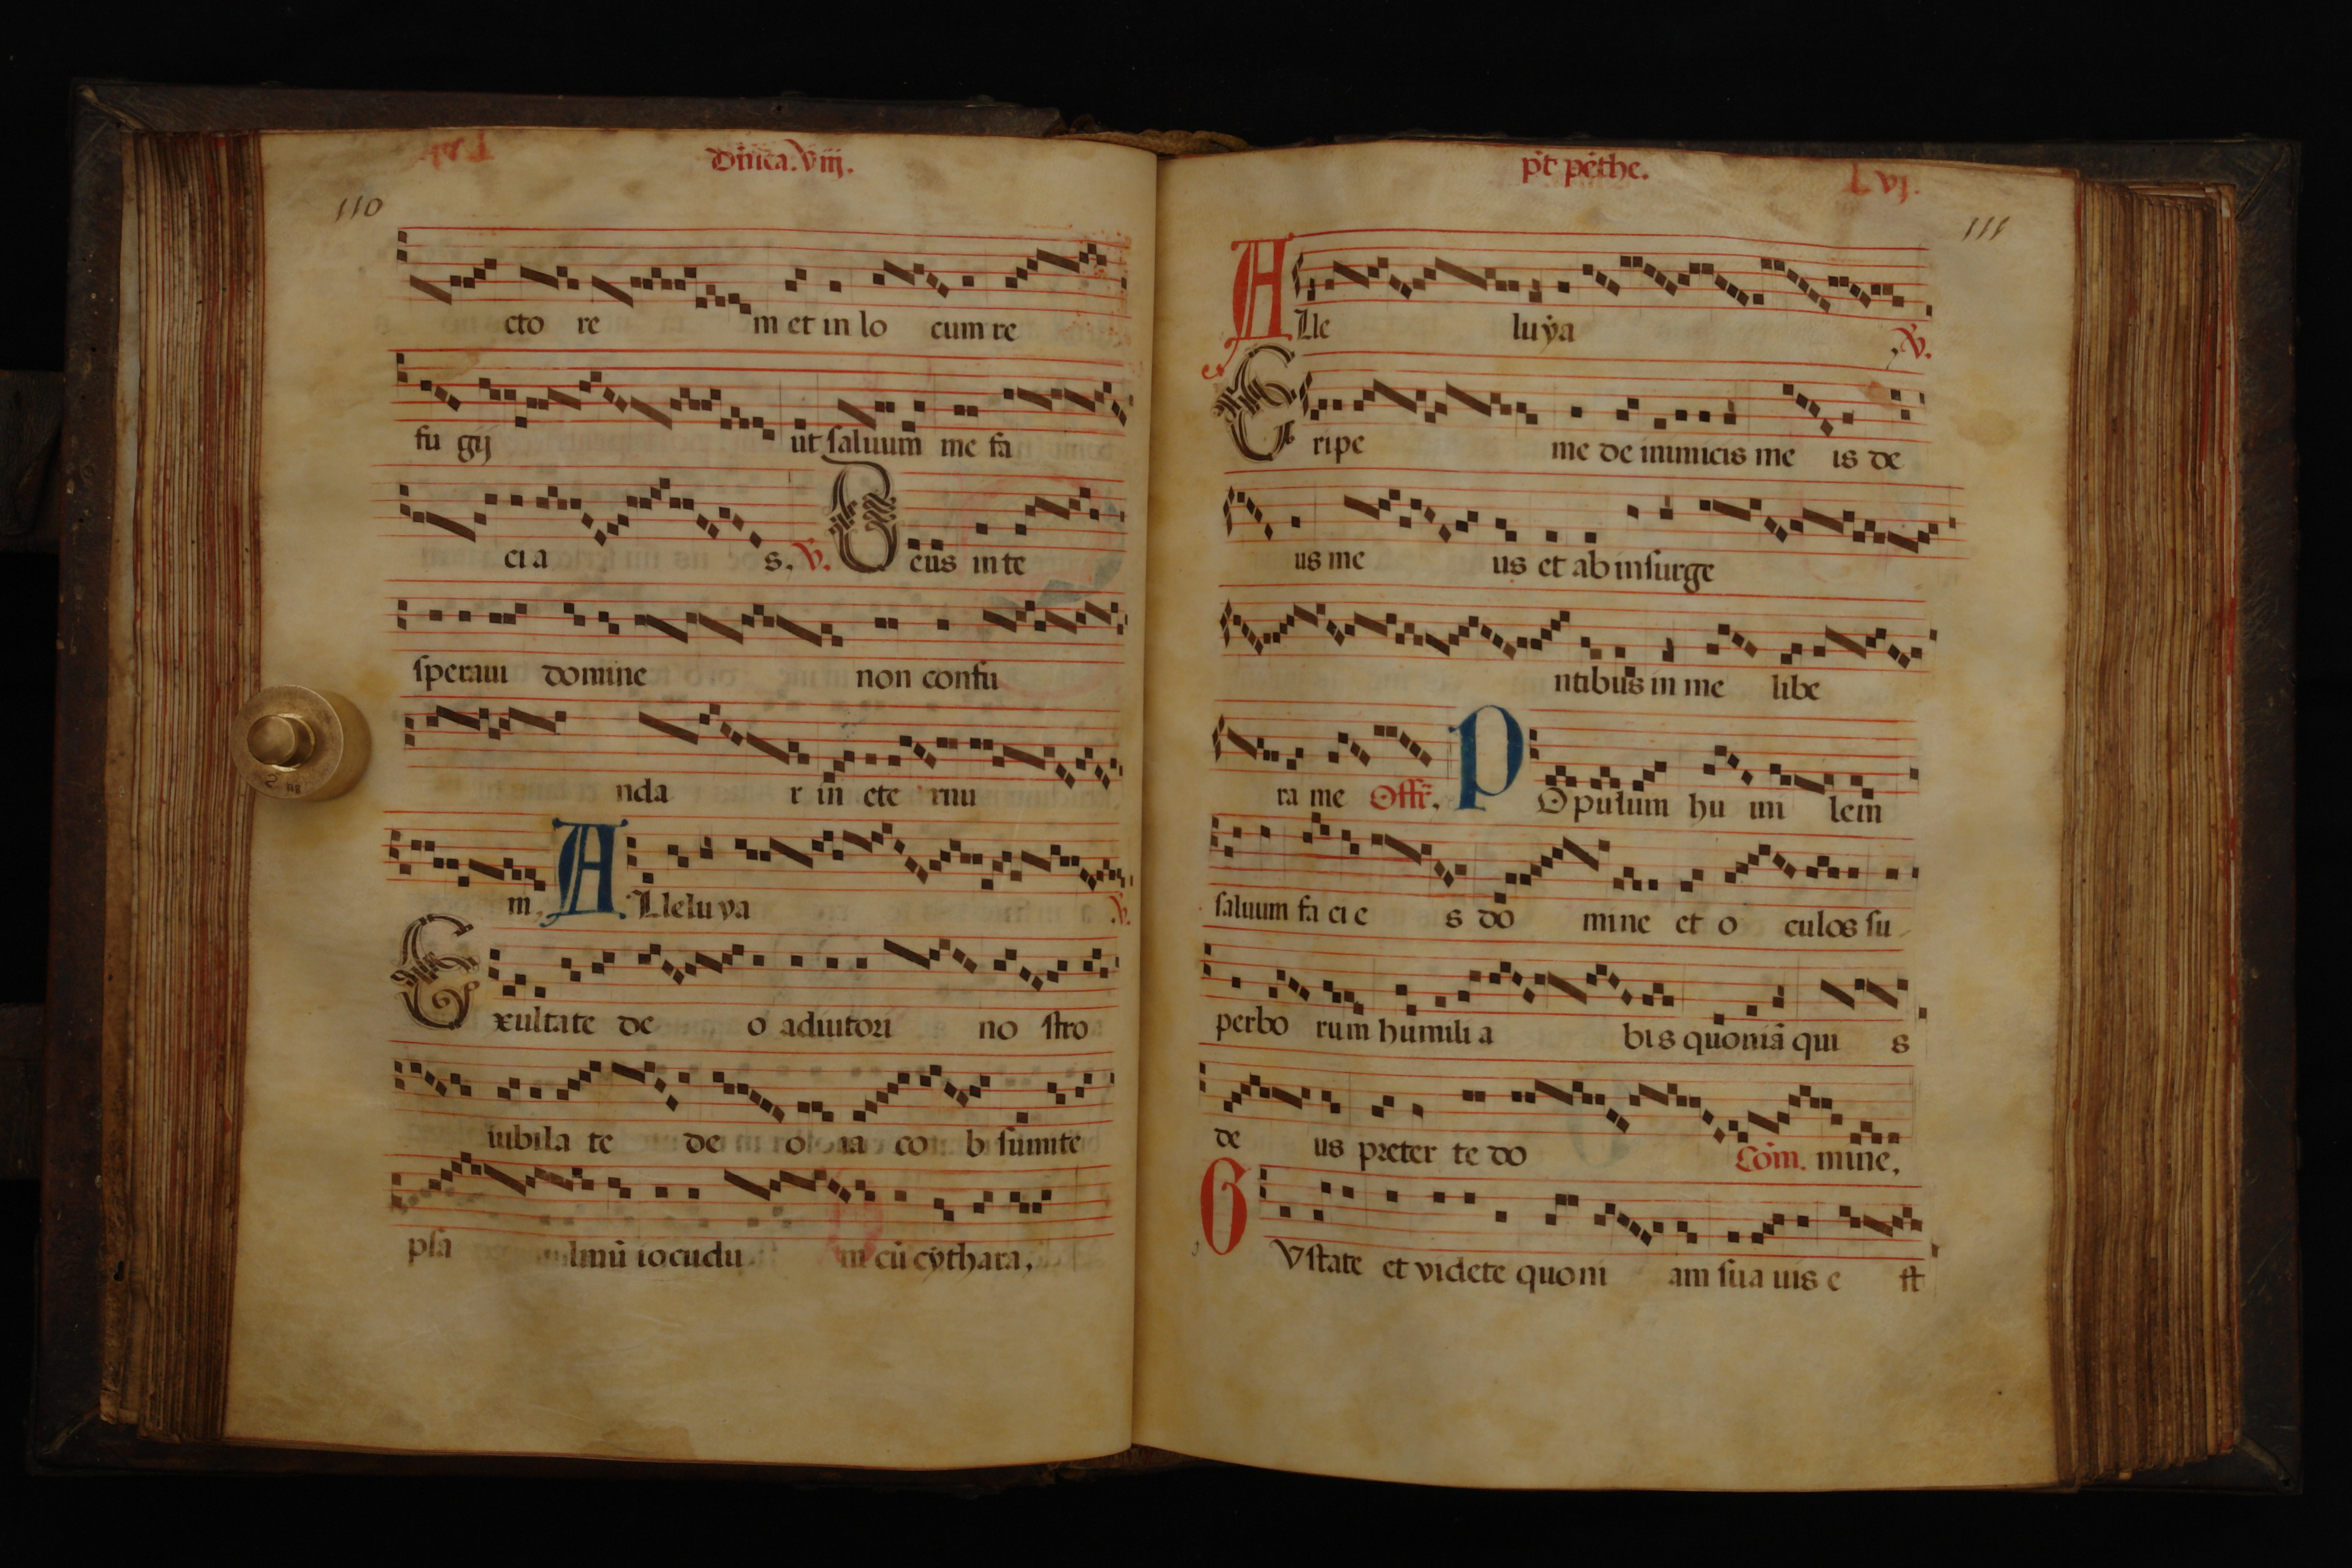 Dn̄ica. viij.
110
cto re m et in lo cum re
fu gij ut saluum me fa
ci a s. V. Deus in te
speraui domine non confu
nda r in ete rnu
m. Alleluya V.
Exultate de o adiutori no stro
iubila te de o ia co b sumite
psa lmū iocundu m cū cythara.
pt̄ pēthe.
Lvj.
111
Alle luya . V.
Eripe me de inimicis me is de
us me us et ab insurge
ntibus in me libe
ra me Offr̄. POpulum hu mi lem
saluum fa ci e s do mine et o culos su
perbo rum humili a bis quoniā qui s
de us preter te do Com̄. mine.
GVstate et videte quoni am sua uis e st